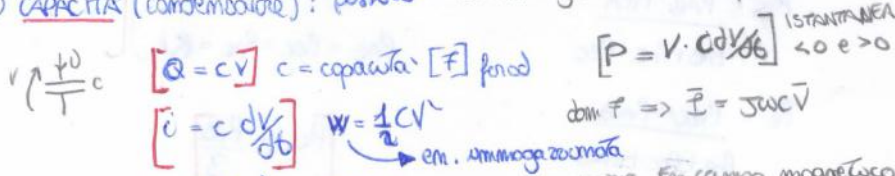 CAPACITÀ (condensatore):
[Q = CV] C = capacità [F] farad
[P = V · C dV/dt] ISTANTANEA <0 e >0
V C
[i = C dV/dt] W = 1/2 CV²
dom F => Ī = jωC V̄
en. immagazzinata
campo magnetico